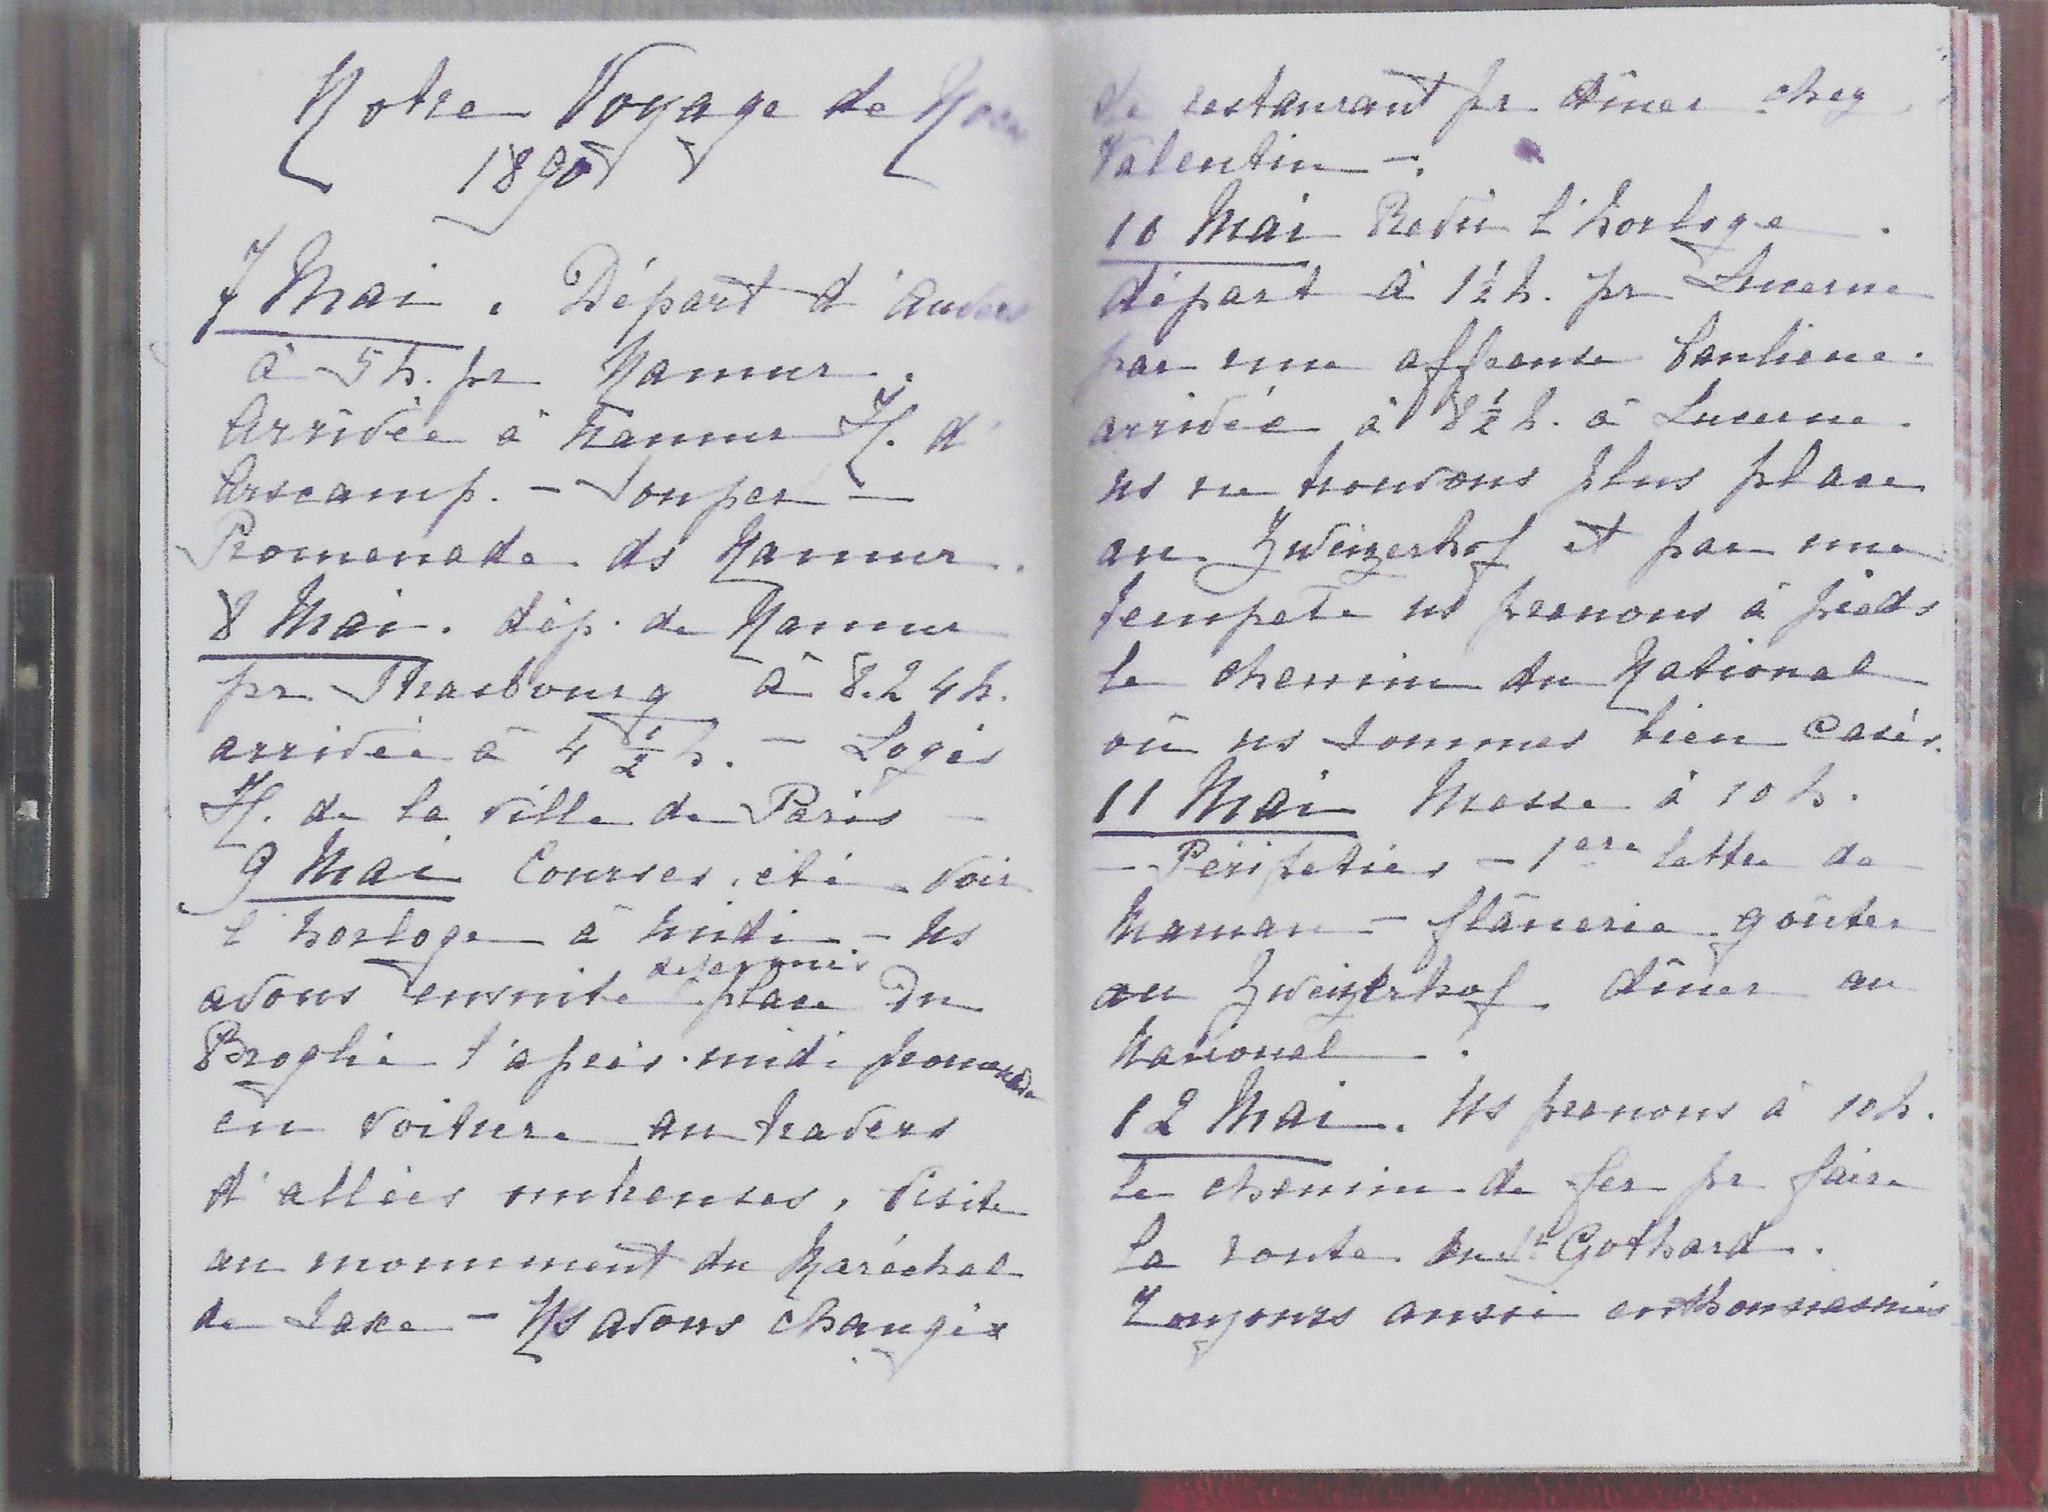 Notre Voyage de Noces
1890
7 Mai. Départ d'Anvers
à 5 h. pr Namur.
Arrivée à Namur H. d'
Arscamp. - Souper -
Promenade ds Namur.
8 Mai. dép. de Namur
pr Strasbourg à 8.24 h.
arrivée à 4 1/2 h. - Logés
H. de la ville de Paris -
9 Mai Courses, été voir
l'horloge à midi - Ns
avons ensuite déjeuné place du
Broglie l'après-midi promenade
en voiture au travers
d'allées immenses, Visite
au monument du Maréchal
de Saxe - Ns avons changé
de restaurant pr dîner chez
Valentin -.
10 Mai Revu l'horloge.
départ à 1 1/2 h. pr Lucerne
par une affreuse banlieue.
arrivée à 8 1/2 h. à Lucerne.
ns ne trouvons plus place
au Zweizerhof et par une
tempete ns prenons à pieds
le chemin du National
où ns sommes bien casés.
11 Mai Messe à 10 h.
- Péripeties - 1ere lettre de
Maman - flânerie goûter
au Zweizerhof dîner au
National -.
12 Mai. Ns prenons à 10 h.
le chemin de fer pr faire
la route du St Gothard.
Toujours aussi